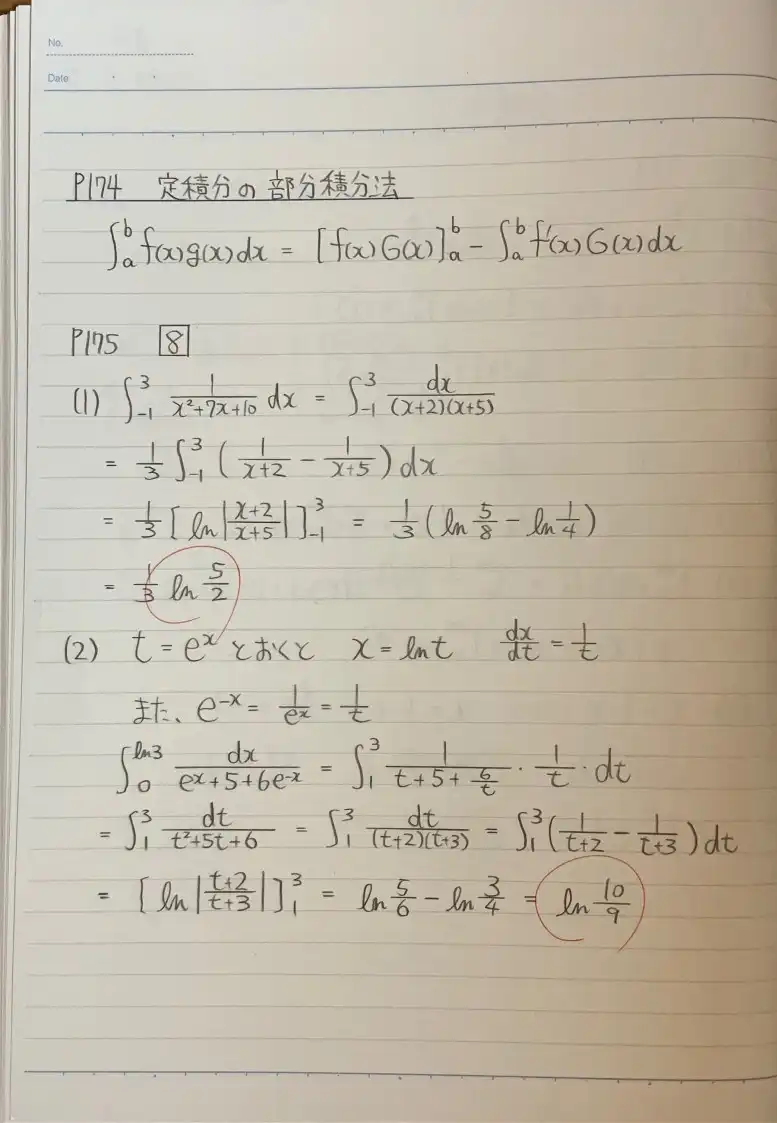 No.
Date
P174 定積分の部分積分法
∫_a^b f(x)g(x)dx = [f(x)G(x)]_a^b - ∫_a^b f'(x)G(x)dx
P175 8
(1) ∫_{-1}^3 1/(x²+7x+10) dx = ∫_{-1}^3 dx/((x+2)(x+5))
= 1/3 ∫_{-1}^3 (1/(x+2) - 1/(x+5)) dx
= 1/3 [ln|(x+2)/(x+5)|]_{-1}^3 = 1/3 (ln 5/8 - ln 1/4)
= 1/3 ln 5/2
(2) t = e^x とおくと x = ln t dx/dt = 1/t
また、e^{-x} = 1/e^x = 1/t
∫_0^{ln3} dx/(e^x+5+6e^{-x}) = ∫_1^3 1/(t+5+6/t) · 1/t · dt
= ∫_1^3 dt/(t²+5t+6) = ∫_1^3 dt/((t+2)(t+3)) = ∫_1^3 (1/(t+2) - 1/(t+3)) dt
= [ln|(t+2)/(t+3)|]_1^3 = ln 5/6 - ln 3/4 = ln 10/9